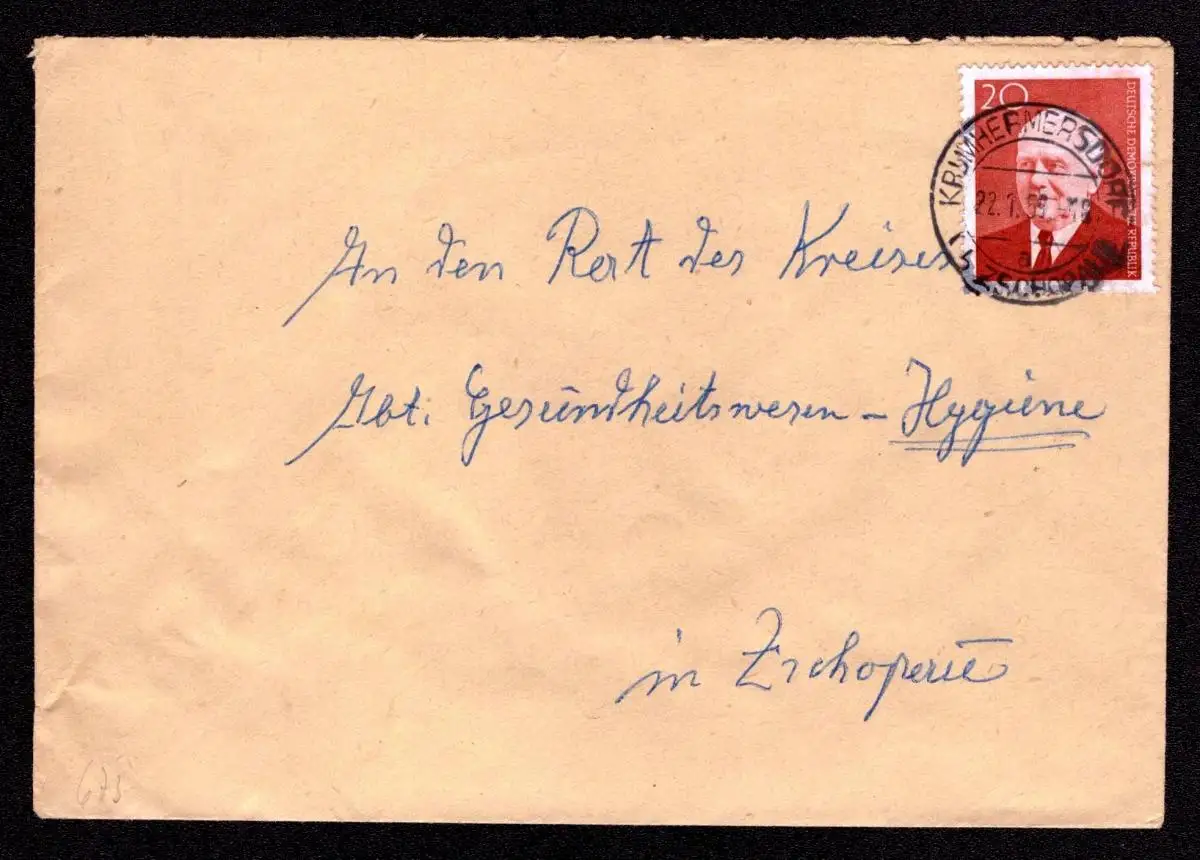 20
DEUTSCHE DEMOKRATISCHE REPUBLIK
KRUMHERMERSDORF
22.1.59
An den Rat des Kreises
Abt. Gesundheitswesen – Hygiene
in Zschopau
673